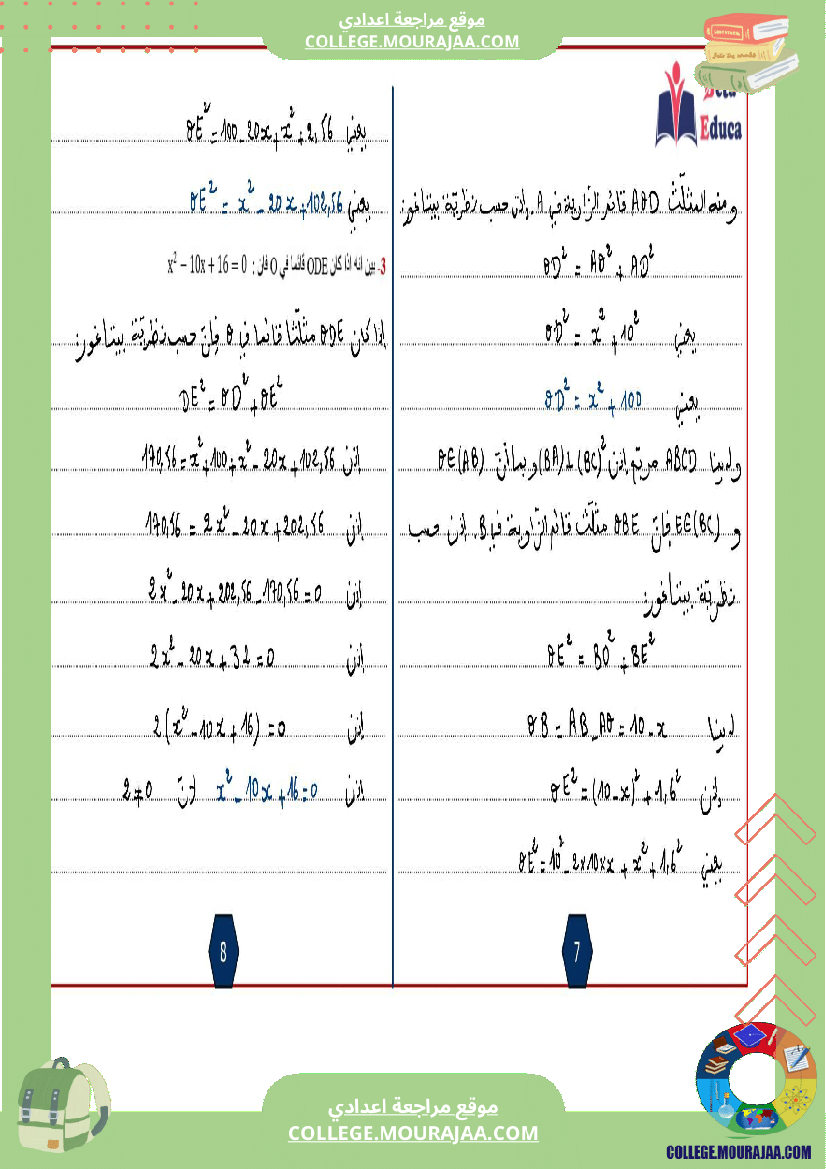 موقع مراجعة اعدادي
COLLEGE.MOURAJAA.COM
Beta
Educa
ومنه المثلّث AOD قائم الزّاوية في A. إذن حسب نظريّة بيتاغور:
OD² = AO² + AD²
يعني OD² = x² + 10²
يعني OD² = x² + 100
ولدينا ABCD مربّع إذن (BA)⊥(BC) وبما أنّ O∈(AB)
و E∈(BC) فإنّ OBE مثلّث قائم الزّاوية في B. إذن حسب
نظريّة بيتاغور:
OE² = BO² + BE²
لدينا OB = AB - AO = 10 - x
إذن OE² = (10 - x)² + 1,6²
يعني OE² = 10² - 2×10×x + x² + 1,6²
7
يعني OE² = 100 - 20x + x² + 2,56
يعني OE² = x² - 20x + 102,56
3- بين انه اذا كان ODE قائما في O فان : x² − 10x + 16 = 0
إذا كان ODE مثلّثا قائما في O فإنّ حسب نظريّة بيتاغور:
DE² = OD² + OE²
إذن 170,56 = x² + 100 + x² - 20x + 102,56
إذن 170,56 = 2x² - 20x + 202,56
إذن 2x² - 20x + 202,56 - 170,56 = 0
إذن 2x² - 20x + 32 = 0
إذن 2(x² - 10x + 16) = 0
إذن x² - 10x + 16 = 0 لأنّ 2≠0
8
موقع مراجعة اعدادي
COLLEGE.MOURAJAA.COM
COLLEGE.MOURAJAA.COM